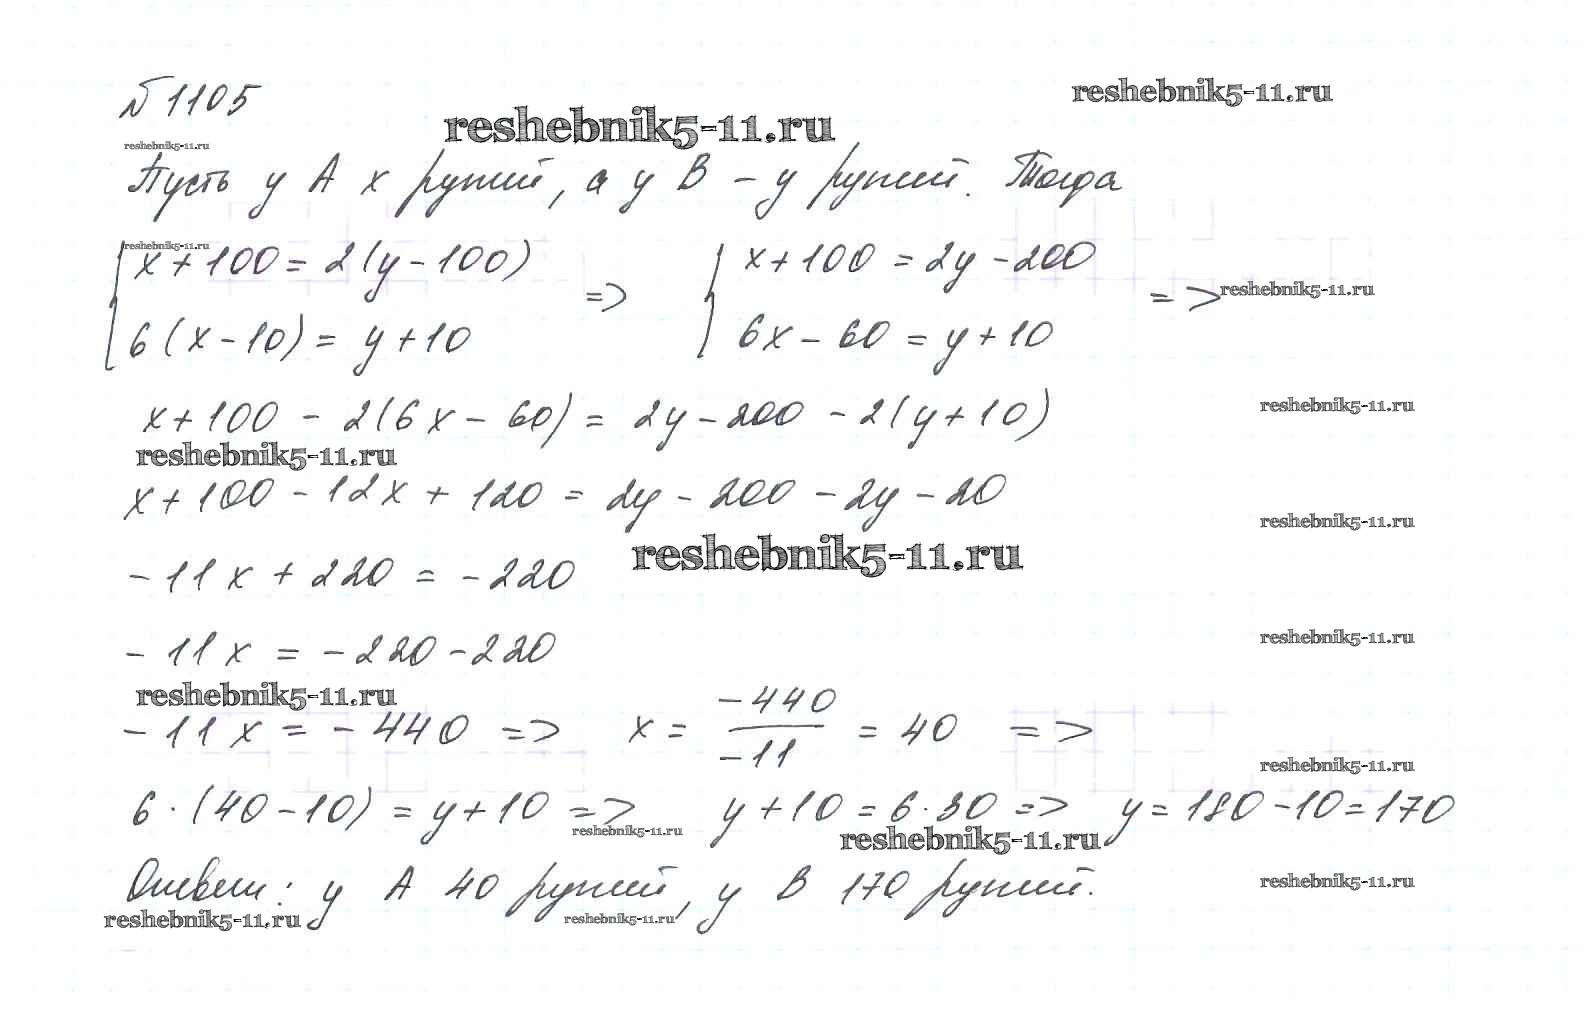 №1105
reshebnik5-11.ru
reshebnik5-11.ru
reshebnik5-11.ru
Пусть у А x рупий, а у В - y рупий. Тогда
reshebnik5-11.ru
x+100 = 2(y-100) => x+100 = 2y-200 =>
reshebnik5-11.ru
6(x-10) = y+10 6x-60 = y+10
x+100 - 2(6x-60) = 2y-200 - 2(y+10)
reshebnik5-11.ru
reshebnik5-11.ru
x+100 - 12x + 120 = 2y - 200 - 2y - 20
reshebnik5-11.ru
reshebnik5-11.ru
-11x + 220 = -220
-11x = -220-220
reshebnik5-11.ru
reshebnik5-11.ru
-11x = -440 => x = -440/-11 = 40 =>
reshebnik5-11.ru
6·(40-10) = y+10 => y+10 = 6·30 => y = 180-10 = 170
reshebnik5-11.ru
reshebnik5-11.ru
Ответ: у А 40 рупий, у В 170 рупий.
reshebnik5-11.ru
reshebnik5-11.ru
reshebnik5-11.ru